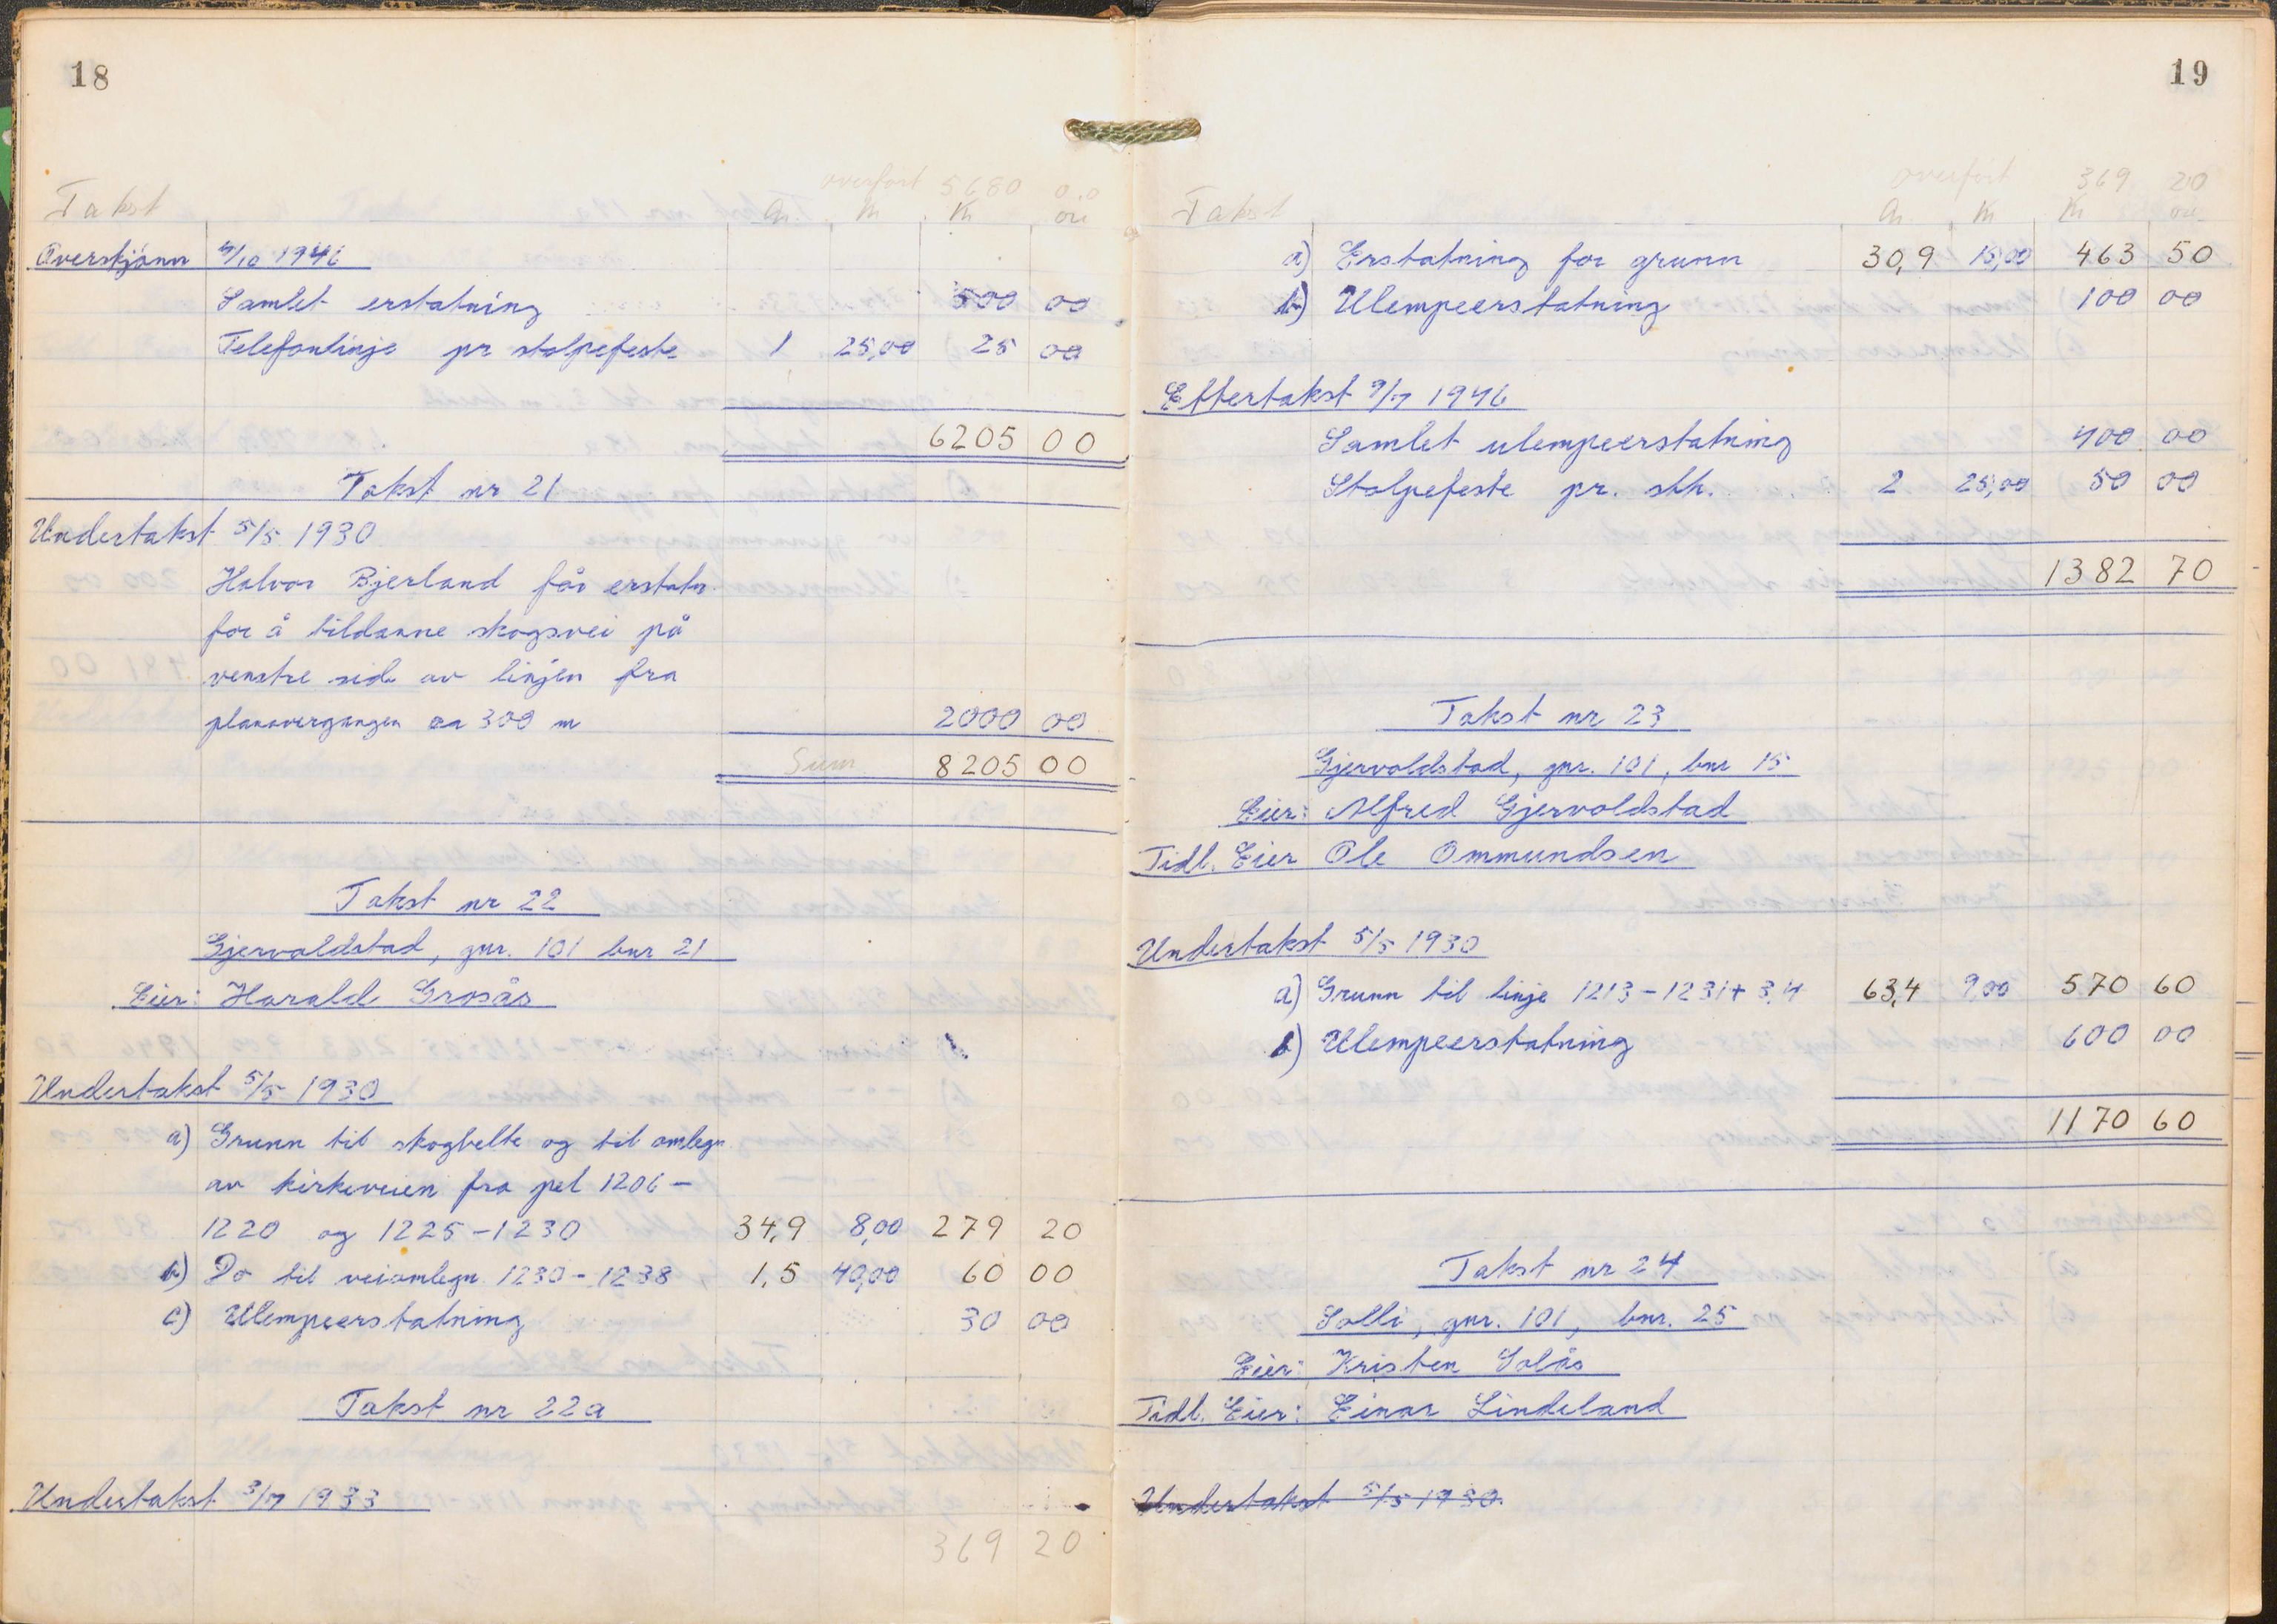 18
overført 5680 00
Takst Ar. Kr Kr øre
Overskjønn 4/10 1946
Samlet erstatning 500 00
Telefonlinje pr stolpefeste 1 25,00 25 00
6205 00
Takst nr 21
Undertakst 5/5 1930
Halvor Bjerland får erstatn.
for å tildanne skogsvei på
venstre side av linjen fra
planovergangen ca 300 m 2000 00
Sum 8205 00
Takst nr 22
Gjervoldstad, gnr. 101 bnr 21
Eier: Harald Grosås
Undertakst 5/5 1930
a) Grunn til skogbelte og til omlegn
av kirkeveien fra pel 1206 –
1220 og 1225 – 1230 34,9 8,00 279 20
b) Do til veiomlegn. 1230 – 1238 1,5 40,00 60 00
c) Ulempeerstatning 30 00
Takst nr 22a
Undertakst 3/7 1933
369 20
19
overført 369 20
Takst Ar. Kr Kr øre
a) Erstatning for grunn 30,9 15,00 463 50
b) Ulempeerstatning 100 00
Eftertakst 9/7 1946
Samlet ulempeerstatning 400 00
Stolpefeste pr. stk. 2 25,00 50 00
1382 70
Takst nr 23
Gjervoldstad, gnr. 101, bnr 15
Eier: Alfred Gjervoldstad
Tidl. Eier Ole Ommundsen
Undertakst 5/5 1930
a) Grunn til linje 1213 – 1231 + 3,4 63,4 9,00 570 60
b) Ulempeerstatning 600 00
1170 60
Takst nr 24
Solli, gnr. 101, bnr. 25
Eier: Kristen Solås
Tidl. Eier: Einar Lindeland
Undertakst 5/5 1930.